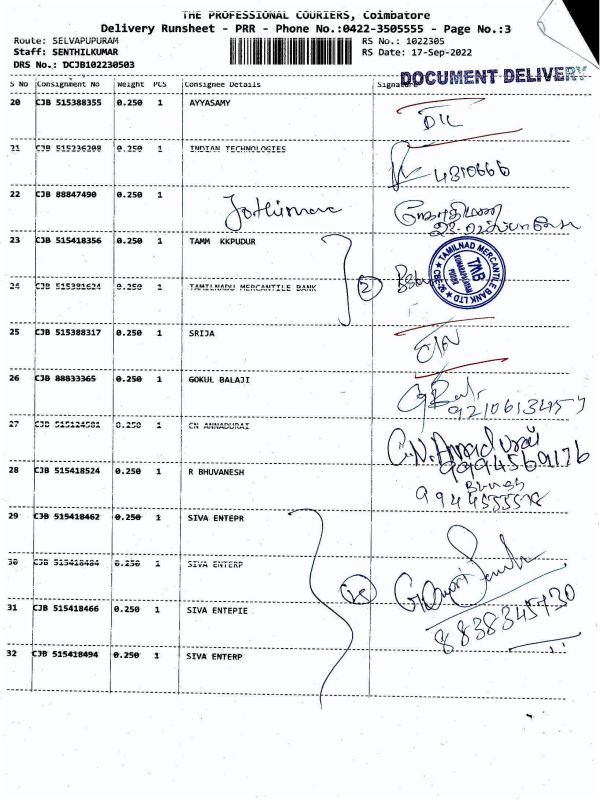 THE PROFESSIONAL COURIERS, Coimbatore
Delivery Runsheet - PRR - Phone No.:0422-3505555 - Page No.:3
Route: SELVAPUPURAM RS No.: 1022305
Staff: SENTHILKUMAR RS Date: 17-Sep-2022
DRS No.: DCJB102230503
DOCUMENT DELIVERY
S No Consignment No Weight PCS Consignee Details Signature
20 CJB 515388355 0.250 1 AYYASAMY
D/L
21 CJB 515236208 0.250 1 INDIAN TECHNOLOGIES
4310666
22 CJB 88847490 0.250 1
ஜோதிமணி
23 CJB 515418356 0.250 1 TAMM KKPUDUR
TAMILNAD MERCANTILE BANK LTD
TMB
24 CJB 515381624 0.250 1 TAMILNADU MERCANTILE BANK 2
25 CJB 515388317 0.250 1 SRIJA
26 CJB 88833365 0.250 1 GOKUL BALAJI
9210613457
27 CJB 515124581 0.250 1 CN ANNADURAI
C.N. Annadurai
9994569176
28 CJB 515418524 0.250 1 R BHUVANESH
29 CJB 515418462 0.250 1 SIVA ENTEPR
30 CJB 515418484 0.250 1 SIVA ENTERP
31 CJB 515418466 0.250 1 SIVA ENTEPIE
8838345730
32 CJB 515418494 0.250 1 SIVA ENTERP